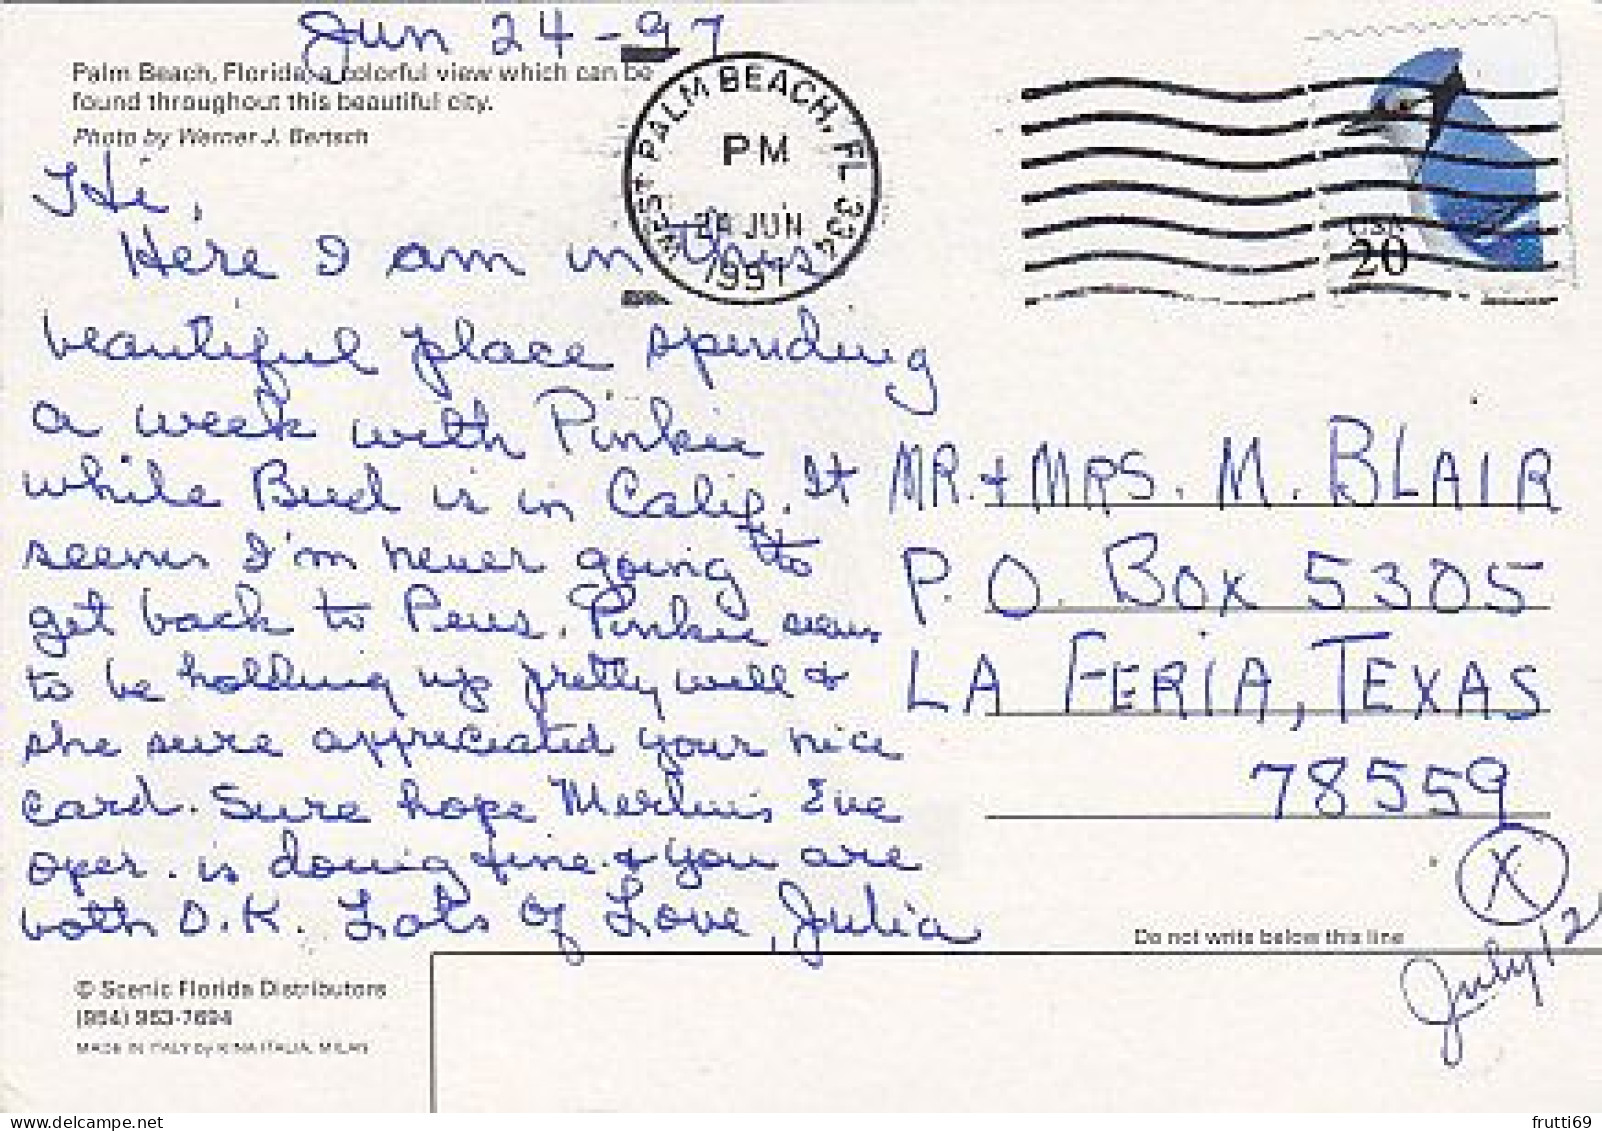 Jun 24-97
Palm Beach, Florida, a colorful view which can be
found throughout this beautiful city.
Photo by Werner J. Bertsch
WEST PALM BEACH, FL 334
PM
24 JUN
1997
USA
20
Hi,
Here I am in this
beautiful place spending
a week with Pinkie
while Bud is in Calif. It
seems I'm never going to
get back to Penna. Pinkie seems
to be holding up pretty well &
she sure appreciated your nice
card. Sure hope Merlin's Eye
oper. is doing fine & you are
both O.K. Lots of Love, Julia
MR. + MRS. M. BLAIR
P.O. BOX 5305
LA FERIA, TEXAS
78559
X
July 12
Do not write below this line
© Scenic Florida Distributors
(954) 963-7694
MADE IN ITALY by KINA ITALIA, MILAN
frutti69